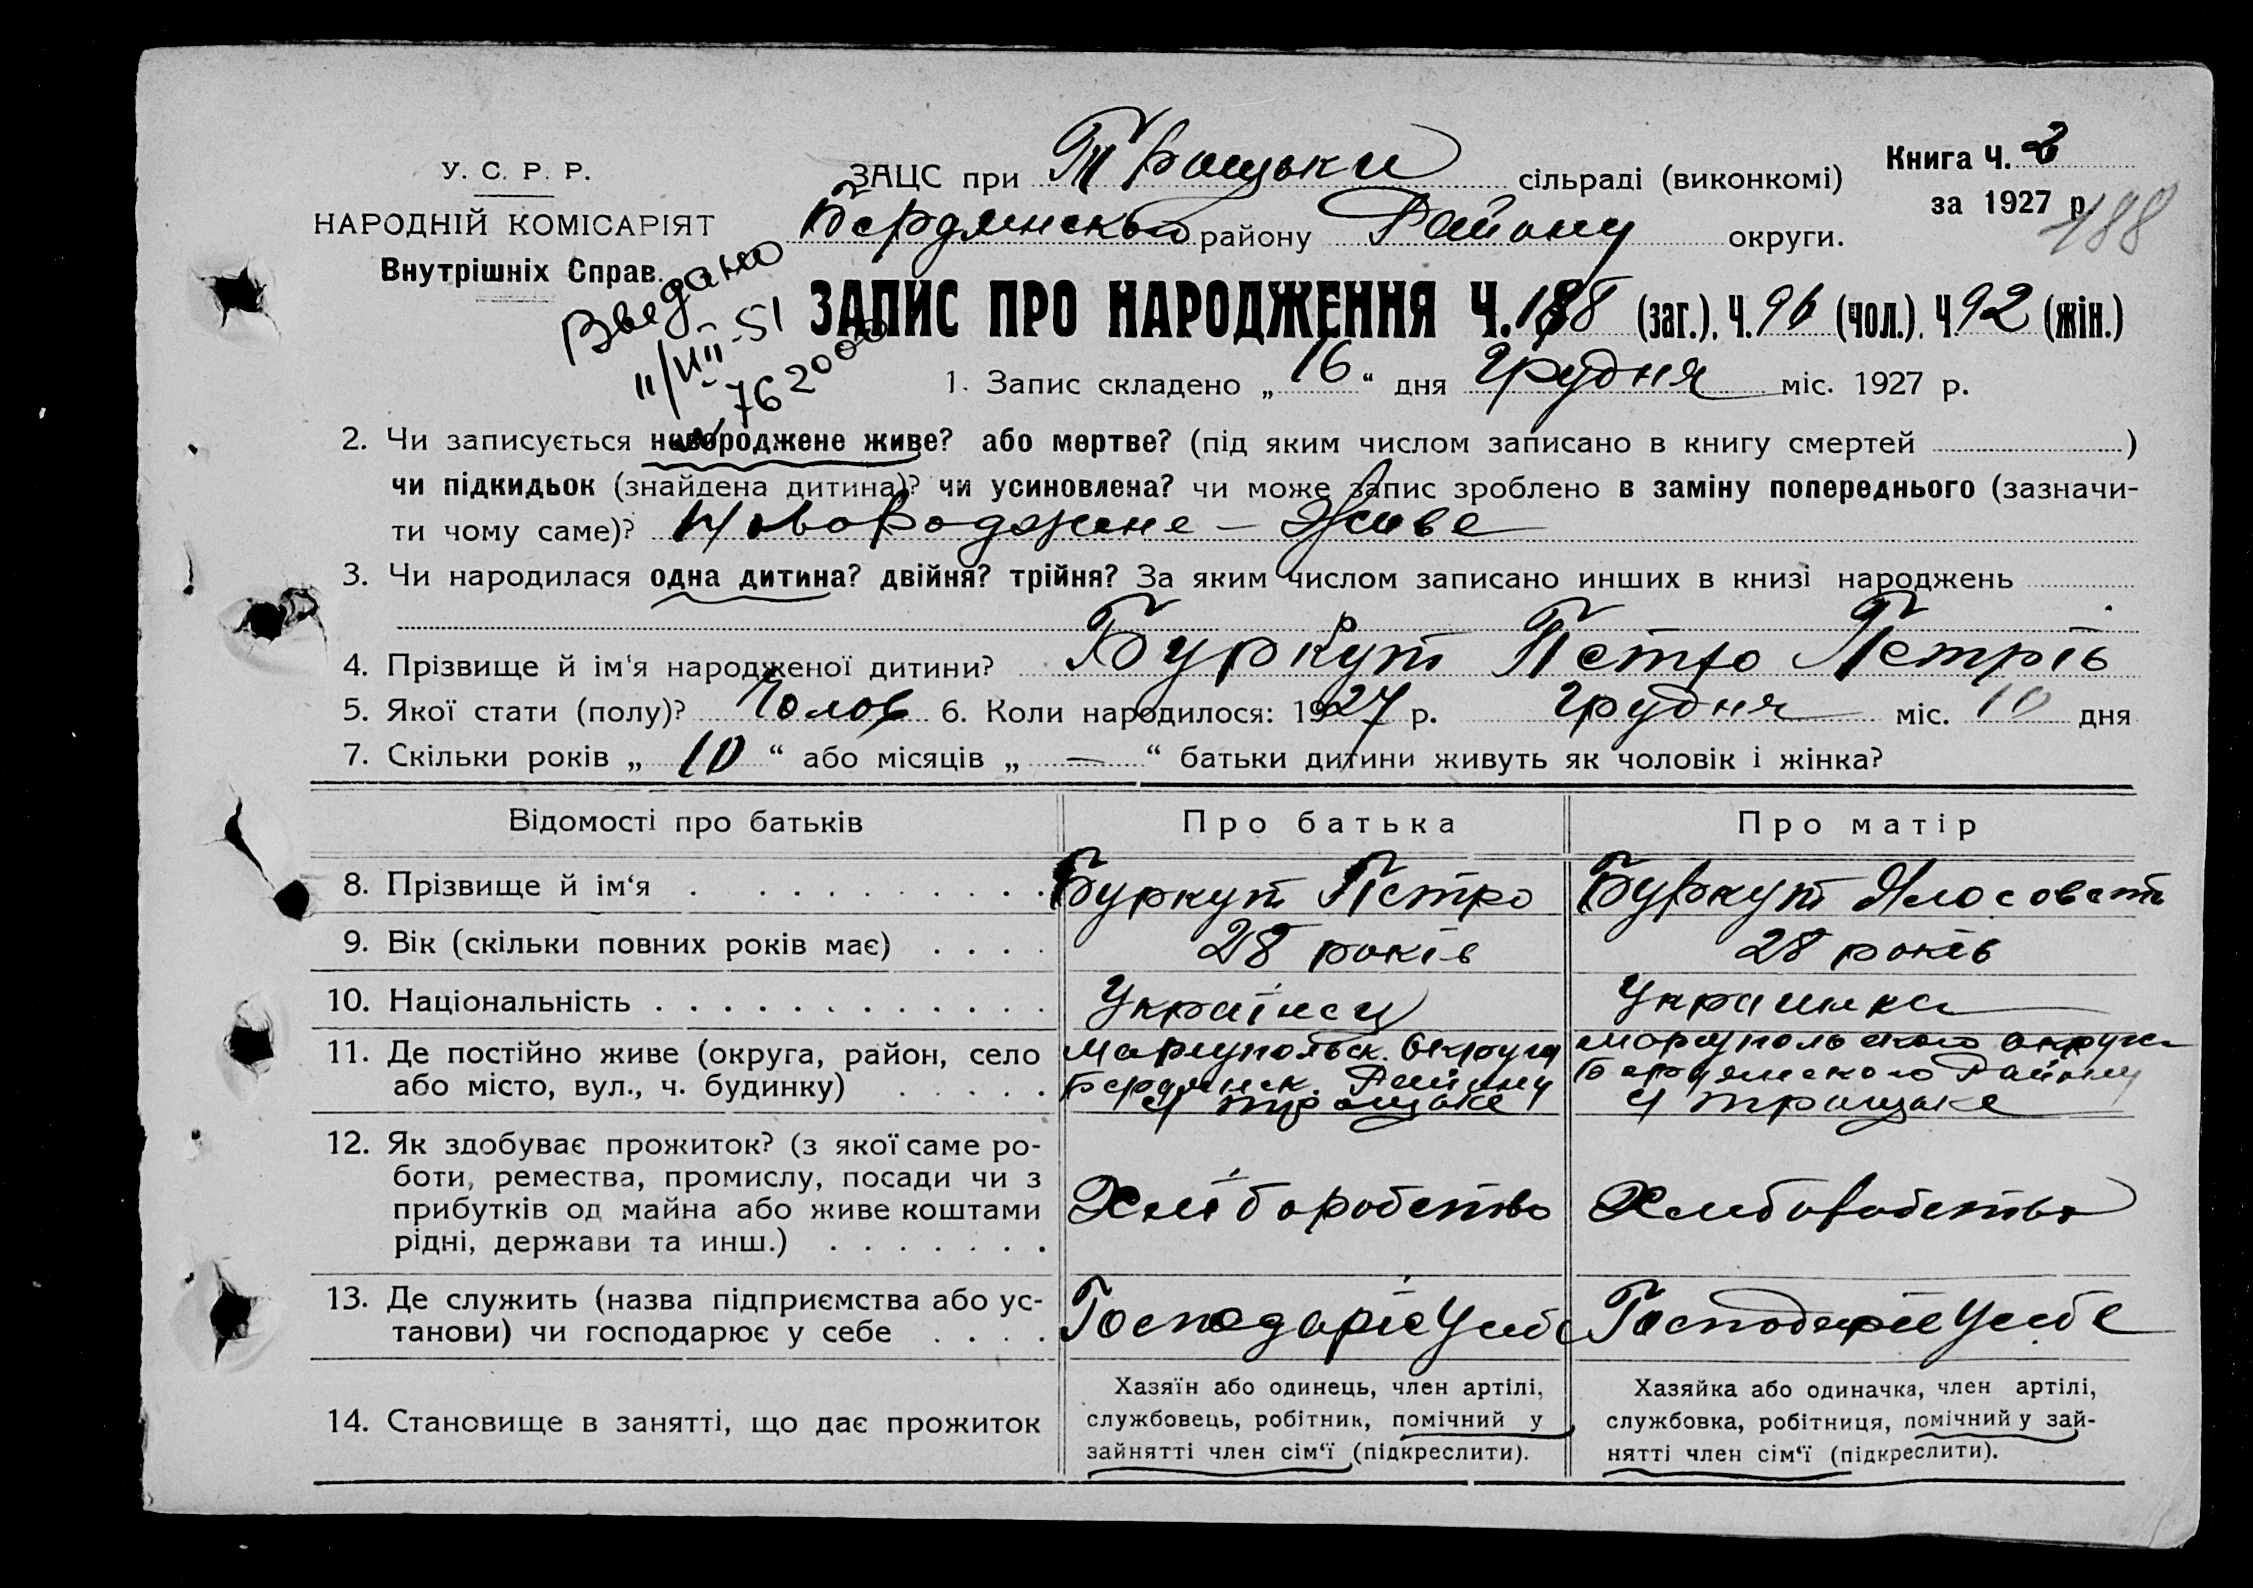 У. С. Р. Р.
НАРОДНІЙ КОМІСАРІЯТ
Внутрішніх Справ.
ЗАЦС при Троцьки сільраді (виконкомі)
Бердянсько району Району округи.
Книга Ч. 2
за 1927 р.
188
Введано
11/VII-51
762000
ЗАПИС ПРО НАРОДЖЕННЯ Ч. 188 (заг.). Ч. 96 (чол.). Ч. 92 (жін.)
1. Запис складено „ 16 “ дня Грудня міс. 1927 р.
2. Чи записується новороджене живе? або мертве? (під яким числом записано в книгу смертей )
чи підкидьок (знайдена дитина)? чи усиновлена? чи може запис зроблено в заміну попереднього (зазначи-
ти чому саме)? Новороджене – Живе
3. Чи народилася одна дитина? двійня? трійня? За яким числом записано инших в книзі народжень
4. Прізвище й ім'я народженої дитини? Буркут Петро Петрів
5. Якої стати (полу)? Чолов 6. Коли народилося: 1927 р. Грудня міс. 10 дня
7. Скільки років „ 10 “ або місяців „ — “ батьки дитини живуть як чоловік і жінка?
Відомості про батьків Про батька Про матір
8. Прізвище й ім'я Буркут Петро Буркут
9. Вік (скільки повних років має) 28 років 28 років
10. Національність Українец Украинка
11. Де постійно живе (округа, район, село
або місто, вул., ч. будинку)
Мариупольск. Округа
Бердянск. Району
Мариупольского округи
Бердянского Району
12. Як здобуває прожиток? (з якої саме ро-
боти, ремества, промислу, посади чи з
прибутків од майна або живе коштами
рідні, держави та инш.)
Хліборобство Хлиборобство
13. Де служить (назва підприємства або ус-
танови) чи господарює у себе
Господаріє У себе Господаріє У себе
14. Становище в занятті, що дає прожиток
Хазяїн або одинець, член артілі,
службовець, робітник, помічний у
зайнятті член сім'ї (підкреслити).
Хазяйка або одиначка, член артілі,
службовка, робітниця, помічний у зай-
нятті член сім'ї (підкреслити).